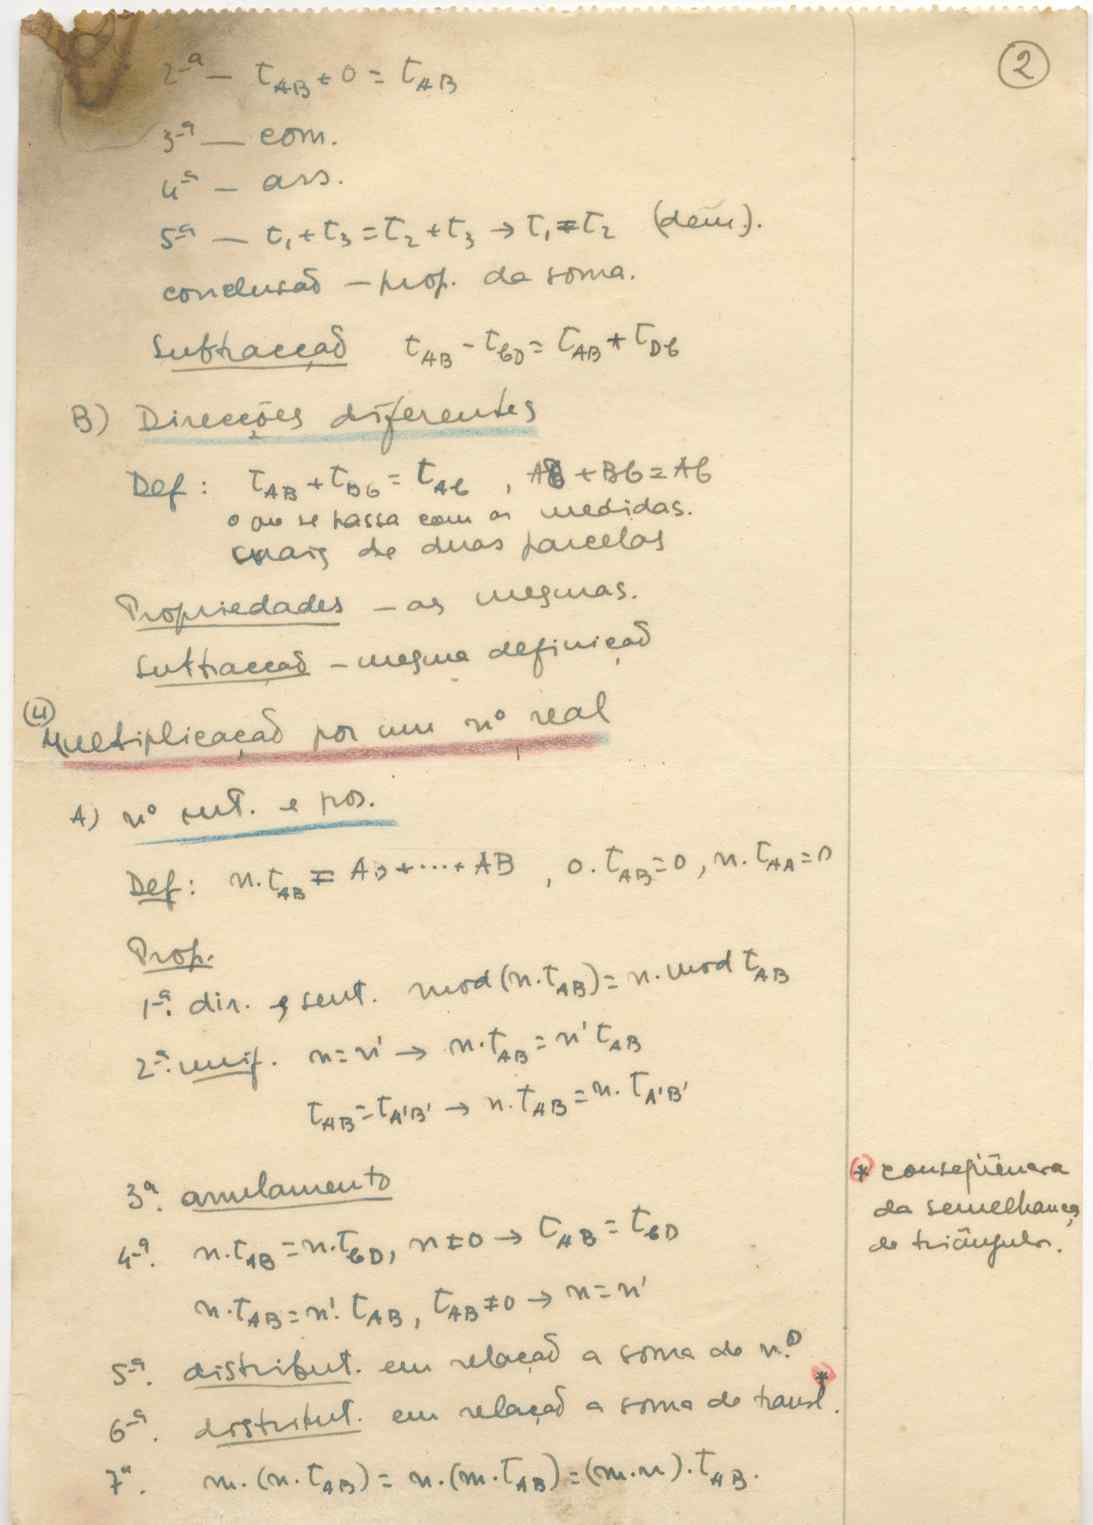 ②
2ª — τ_AB + 0 = τ_AB
3ª — com.
4ª — ass.
5ª — τ₁ + τ₃ = τ₂ + τ₃ → τ₁ = τ₂ (dem.).
conclusão — prop. da soma.
Subtracção τ_AB - τ_CD = τ_AB + τ_DC
B) Direcções diferentes
Def: τ_AB + τ_BC = τ_AC , AB + BC = AC
o que se passa com as medidas.
mais de duas parcelas
Propriedades — as mesmas.
Subtracção — mesma definição
④
Multiplicação por um nº real
A) nº int. e pos.
Def: n.τ_AB = AB + ... + AB , 0.τ_AB = 0 , n.τ_AA = 0
Prop.
1ª. dir. e sent. mod (n.τ_AB) = n. mod τ_AB
2ª. unif. n = n' → n.τ_AB = n' τ_AB
τ_AB = τ_A'B' → n.τ_AB = n. τ_A'B'
3ª. anulamento
4ª. n.τ_AB = n.τ_CD, n ≠ 0 → τ_AB = τ_CD
n.τ_AB = n'. τ_AB , τ_AB ≠ 0 → n = n'
5ª. distribut. em relação a soma de n.º
6ª. distribut. em relação a soma de transl. *
7ª. m.(n.τ_AB) = n.(m.τ_AB) = (m.n).τ_AB.
* conseqüência
da semelhança
de triângulos.